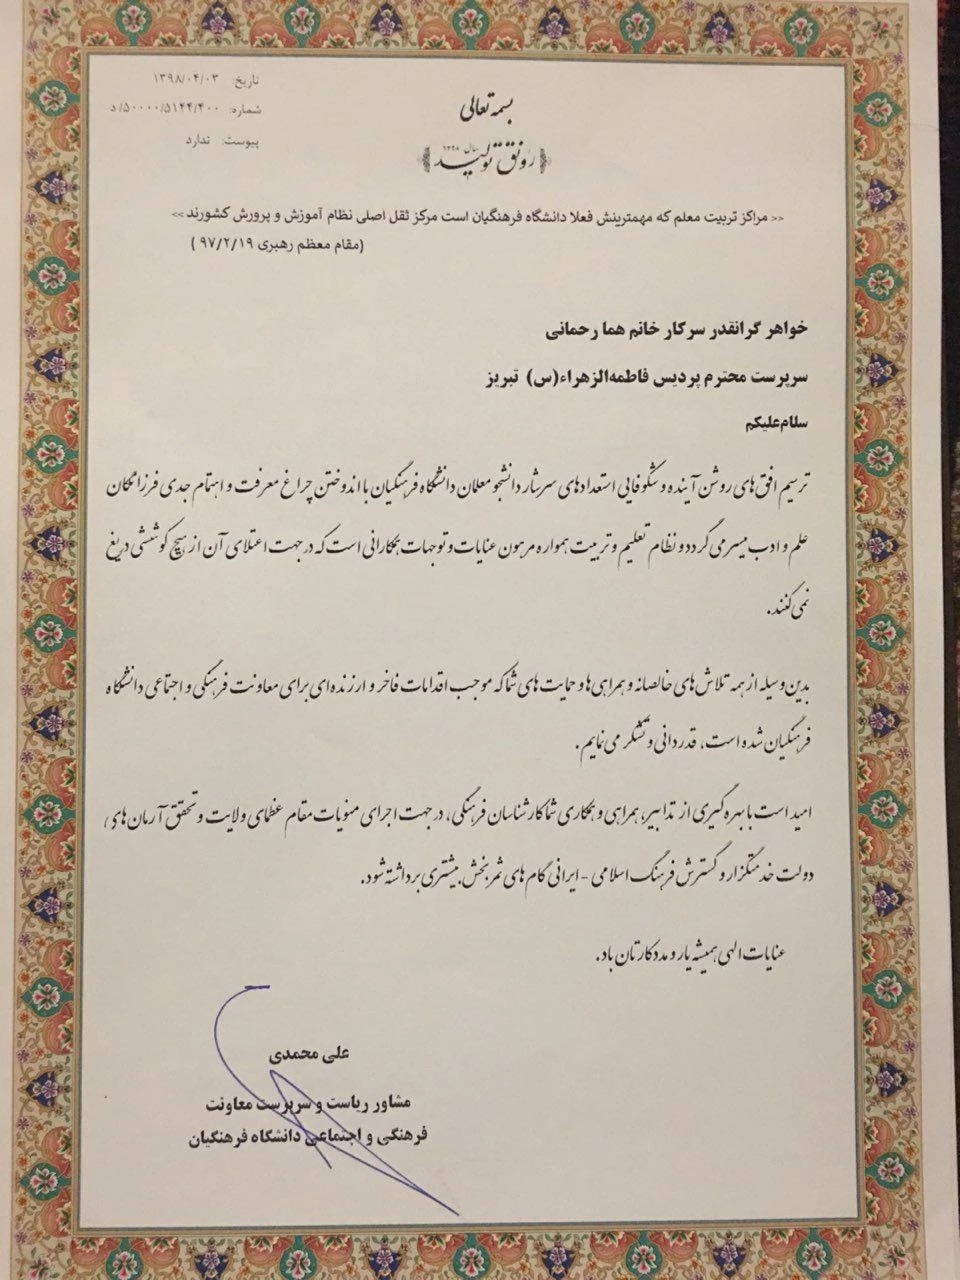 تاریخ: ۱۳۹۸/۰۴/۰۳
شماره: ۵۰۰۰۰/۵۱۴۴/۴۰۰/د
پیوست: ندارد
بسمه تعالی
سال ۱۳۹۸
رونق تولید
<< مراکز تربیت معلم که مهمترینش فعلا دانشگاه فرهنگیان است مرکز ثقل اصلی نظام آموزش و پرورش کشورند >>
(مقام معظم رهبری ۹۷/۲/۱۹ )
خواهر گرانقدر سرکار خانم هما رحمانی
سرپرست محترم پردیس فاطمه‌الزهراء(س) تبریز
سلام‌علیکم
ترسیم افق های روشن آینده و شکوفایی استعدادهای سرشار دانشجو معلمان دانشگاه فرهنگیان با اندوختن چراغ معرفت و اهتمام جدی فرزانگان
علم و ادب میسر می گردد و نظام تعلیم و تربیت همواره مرهون عنایات و توجهات همکارانی است که در جهت اعتلای آن از هیچ کوششی دریغ
نمی کنند.
بدین وسیله از همه تلاش های خالصانه و همراهی ها و حمایت های شما که موجب اقدامات فاخر و ارزنده ای برای معاونت فرهنگی و اجتماعی دانشگاه
فرهنگیان شده است، قدردانی و تشکر می نمایم.
امید است با بهره گیری از تدابیر، همراهی و همکاری شما کارشناسان فرهنگی، در جهت اجرای منویات مقام عظمای ولایت و تحقق آرمان های
دولت خدمتگزار و گسترش فرهنگ اسلامی - ایرانی گام های ثمربخش بیشتری برداشته شود.
عنایات الهی همیشه یار و مددکارتان باد.
علی محمدی
مشاور ریاست و سرپرست معاونت
فرهنگی و اجتماعی دانشگاه فرهنگیان